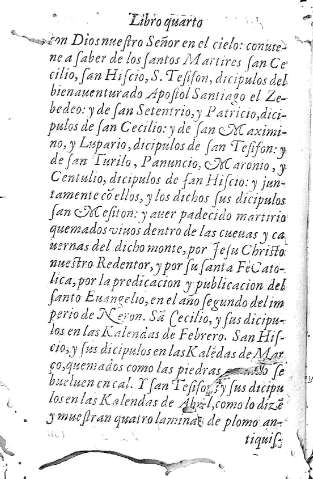 Libro quarto
con Dios nuestro Señor en el cielo: conuie-
ne a saber de los santos Martires san Ce
cilio, san Hiscio, S. Tesifon, dicipulos del
bienauenturado Apostol Santiago el Ze-
bedeo: y de san Setentrio, y Patricio, dici-
pulos de san Cecilio: y de san Maximi-
no, y Lupario, dicipulos de san Tesifon: y
de san Turilo, Panuncio, Maronio, y
Centulio, dicipulos de san Hiscio: y jun-
tamente cõ ellos, y los dichos sus dicipulos
san Mesiton: y auer padecido martirio
quemados viuos dentro de las cueuas y ca
uernas del dicho monte, por Jesu Christo
nuestro Redentor, y por su santa Fè Cato-
lica, por la predicacion y publicacion del
santo Euangelio, en el año segundo del im
perio de Neron. Sã Cecilio, y sus dicipu-
los en las Kalendas de Febrero. San His-
cio, y sus dicipulos en las Kalẽdas de Mar
ço, quemados como las piedras se
bueluen en cal. Y san Tesifon, y sus dicipu
los en las Kalendas de Abril, como lo dizẽ
y muestran quatro laminas de plomo an-
tiquis;